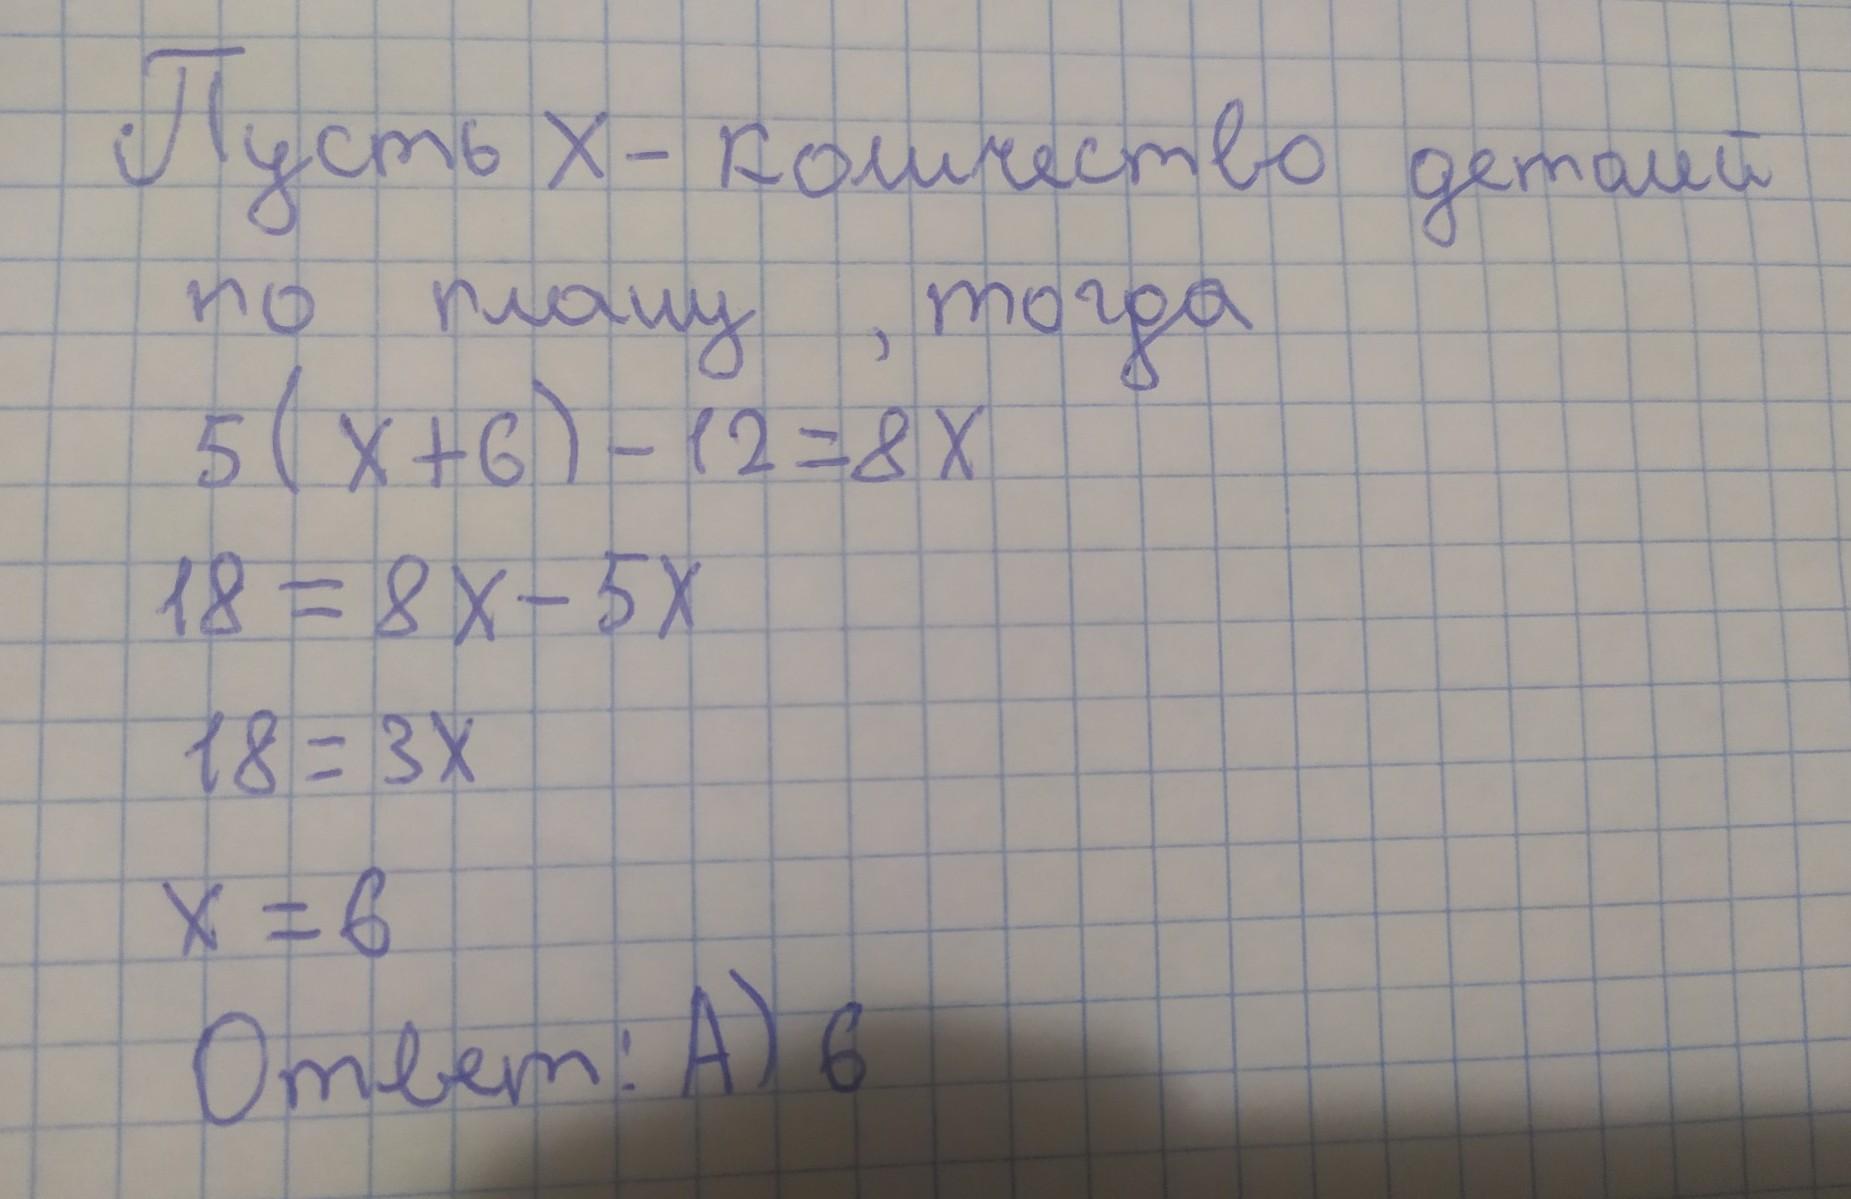 Пусть х - количество деталей
по плану, тогда
5(х+6)-12=8х
18=8х-5х
18=3х
х=6
Ответ: А) 6